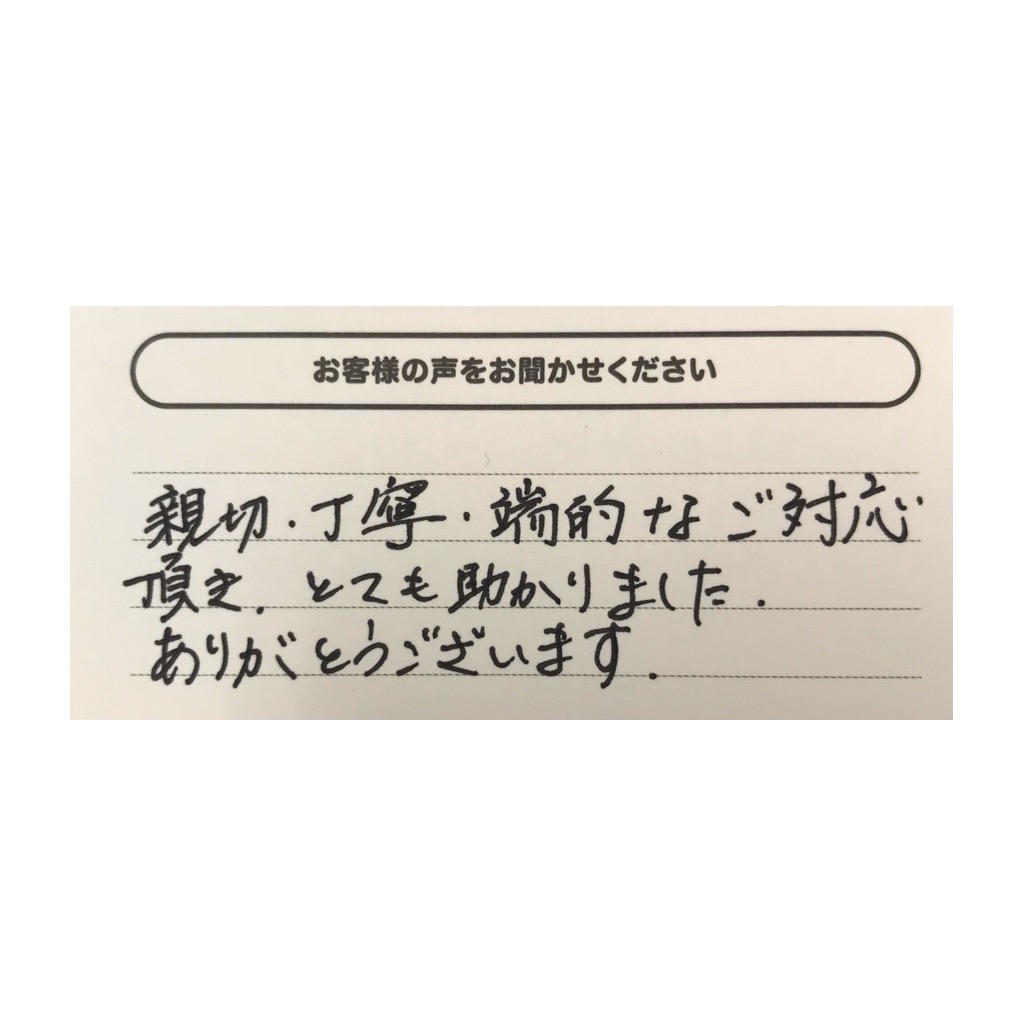 お客様の声をお聞かせください
親切・丁寧・端的なご対応
頂き、とても助かりました.
ありがとうございます.